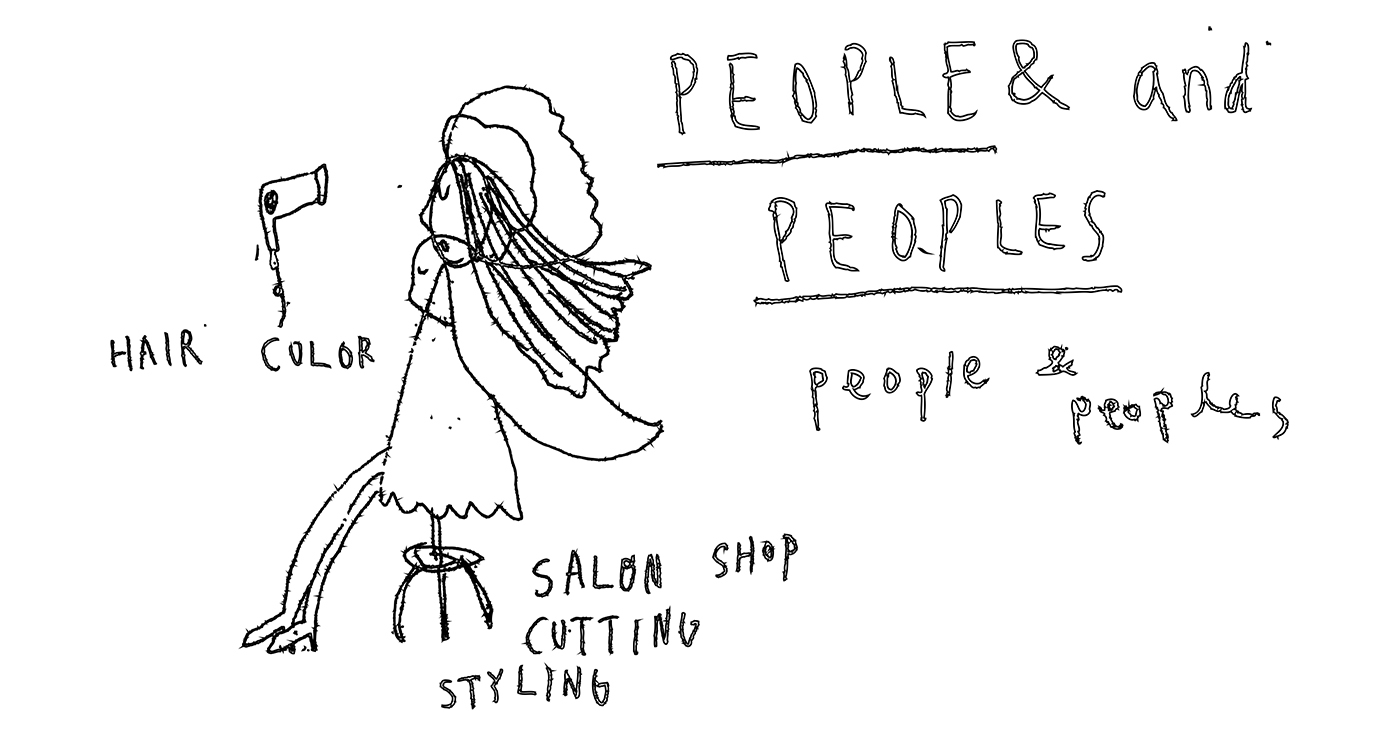 PEOPLE & and
PEOPLES
people &
peoples
HAIR COLOR
SALON SHOP
CUTTING
STYLING